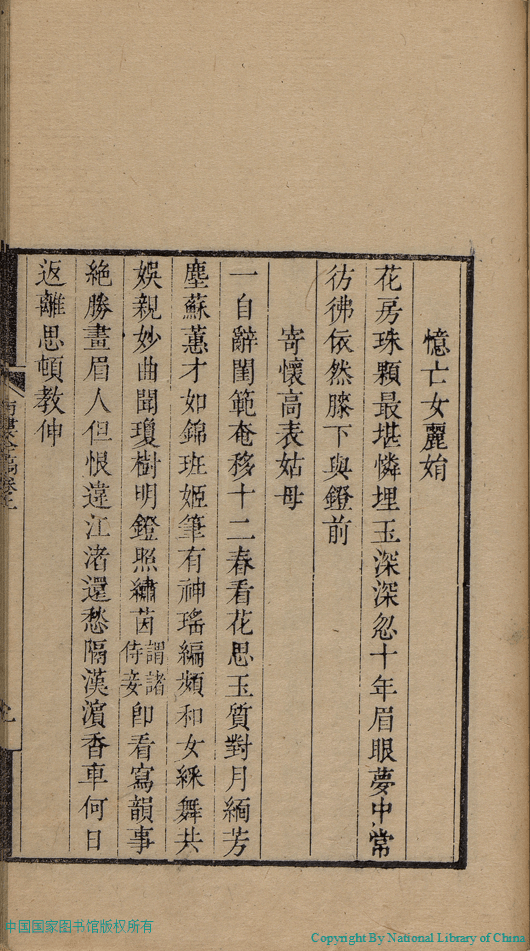 憶亡女麗娋
花房珠顆最堪憐埋玉深深忽十年眉眼夢中常
彷彿依然膝下與鐙前
寄懷高表姑母
一自辭閨範奄移十二春看花思玉質對月緬芳
塵蘇蕙才如錦班姬筆有神瑤編頻和女綵舞共
娛親妙曲聞瓊樹明鐙照繡茵謂諸侍妾卽看寫韻事
絶勝畫眉人但恨違江渚還愁隔漢濱香車何日
返離思頓教伸
中国国家图书馆版权所有
Copyright By National Library of China